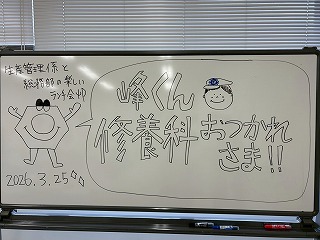 生産管理係と
総務部の楽しい
ランチ会❀
峰くん
修養科 おつかれ
さま!!
2026.3.25